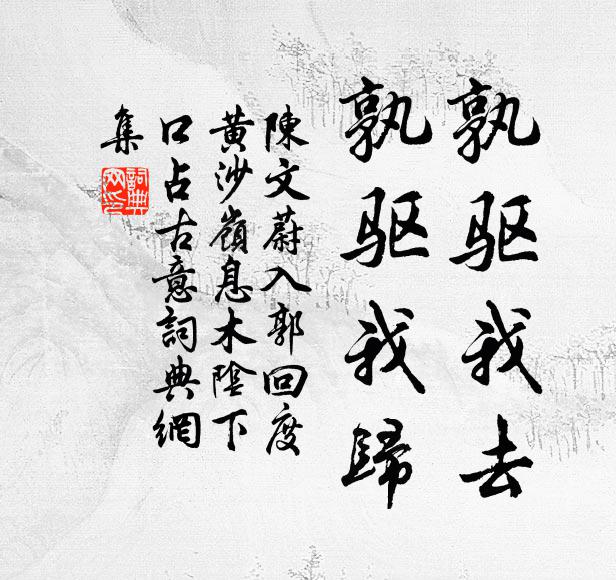 孰驱我去
孰驱我歸
陳文蔚入郭回度
黄沙嶺息木陰下
口占古意詞典網
集
詞典
网印